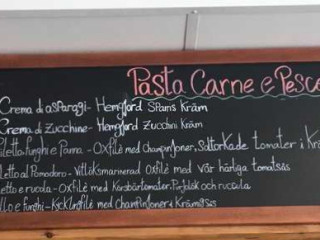 Pasta Carne e Pesce
Crema di asparagi - Hemgjord Sparis Kräm
Crema di Zucchine - Hemgjord Zucchini Kräm
iletto funghi e Panna - Oxfilè med champinjoner, Soltorkade tomater i Kr
iletto al Pomodoro - Vitlöksmarinerad Oxfilè med vår härliga tomatsås
letto e rucola - Oxfilè med Körsbärtomater, Purjolök och rucola
llo e funghi - Kycklingfilè med champinjoner i Krämsås